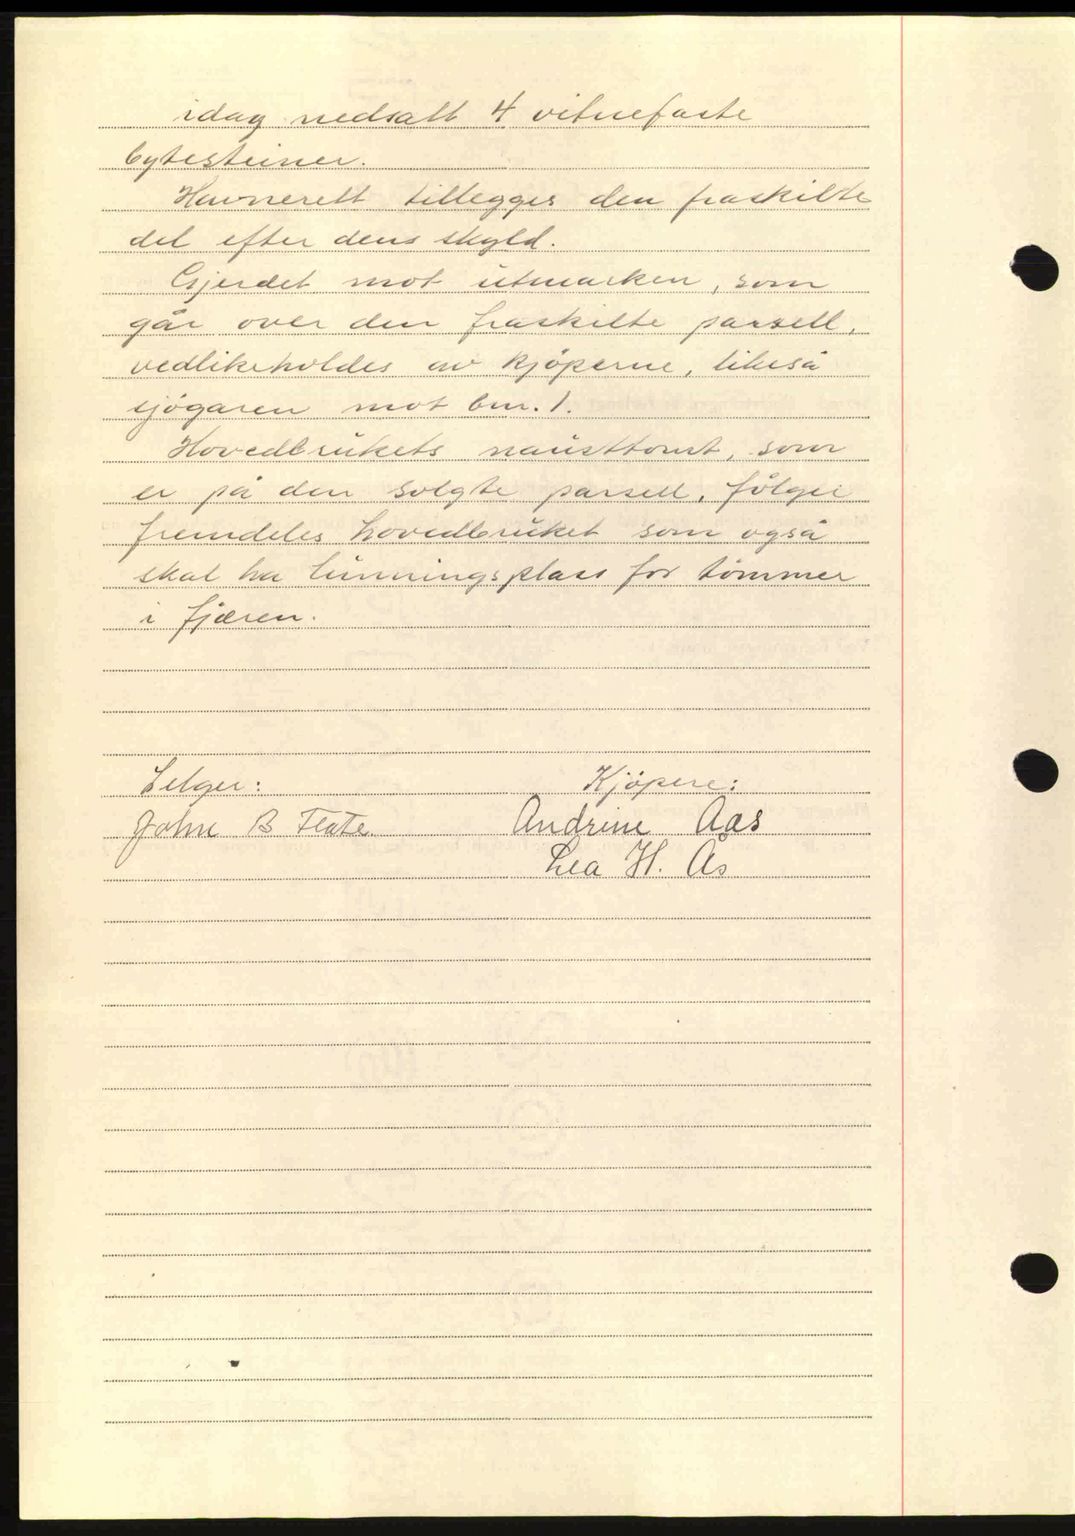 idag nedsatt 4 vitnefaste
bytesteiner.
Havnerett tillegges den fraskilte
del efter dens skyld.
Gjerdet mot utmarken, som
går over den fraskilte parsell,
vedlikeholdes av kjöperne, likeså
sjögaren mot bnr. 1.
Hovedbrukets nausttomt, som
er på den solgte parsell, fölger
fremdeles hovedbruket som også
skal ha lunningsplass for tömmer
i fjæren.
Selger: Kjöpere:
John B Flate Andrine Aas
Lea H. Ås